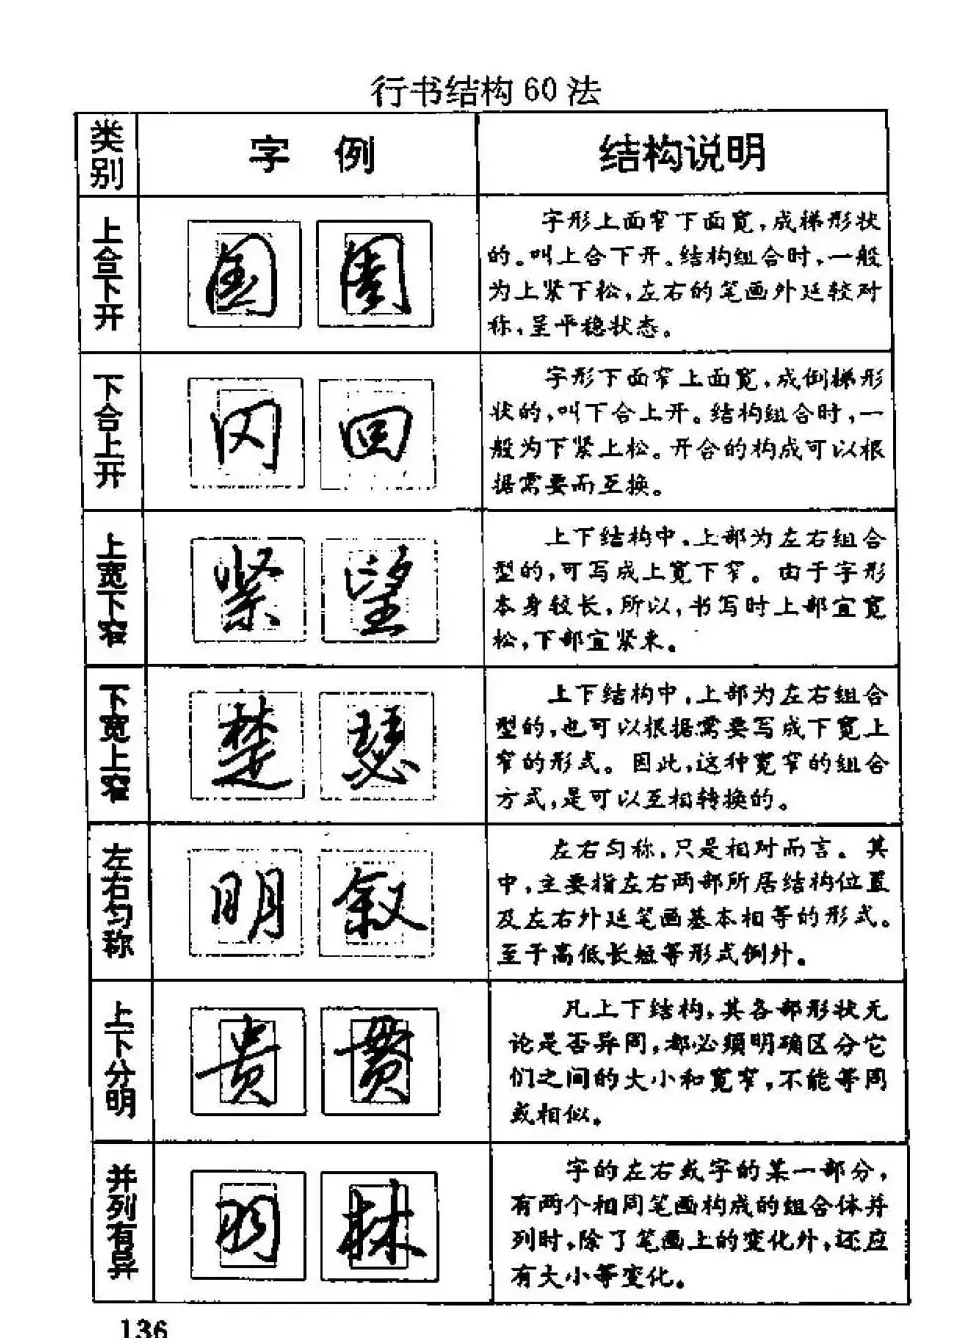 行书结构60法
类别 字例 结构说明
上合下开
国 周
字形上面窄下面宽，成梯形状
的。叫上合下开。结构组合时，一般
为上紧下松，左右的笔画外延较对
称，呈平稳状态。
下合上开
闪 回
字形下面窄上面宽，成倒梯形
状的，叫下合上开。结构组合时，一
般为下紧上松。开合的构成可以根
据需要而互换。
上宽下窄
紧 望
上下结构中，上部为左右组合
型的，可写成上宽下窄。由于字形
本身较长，所以，书写时上部宜宽
松，下部宜紧束。
下宽上窄
楚 瑟
上下结构中，上部为左右组合
型的，也可以根据需要写成下宽上
窄的形式。因此，这种宽窄的组合
方式，是可以互相转换的。
左右匀称
明 叙
左右匀称，只是相对而言。其
中，主要指左右两部所居结构位置
及左右外延笔画基本相等的形式。
至于高低长短等形式例外。
上下分明
贵 贯
凡上下结构，其各部形状无
论是否异同，都必须明确区分它
们之间的大小和宽窄，不能等同
或相似。
并列有异
羽 林
字的左右或字的某一部分，
有两个相同笔画构成的组合体并
列时，除了笔画上的变化外，还应
有大小等变化。
136